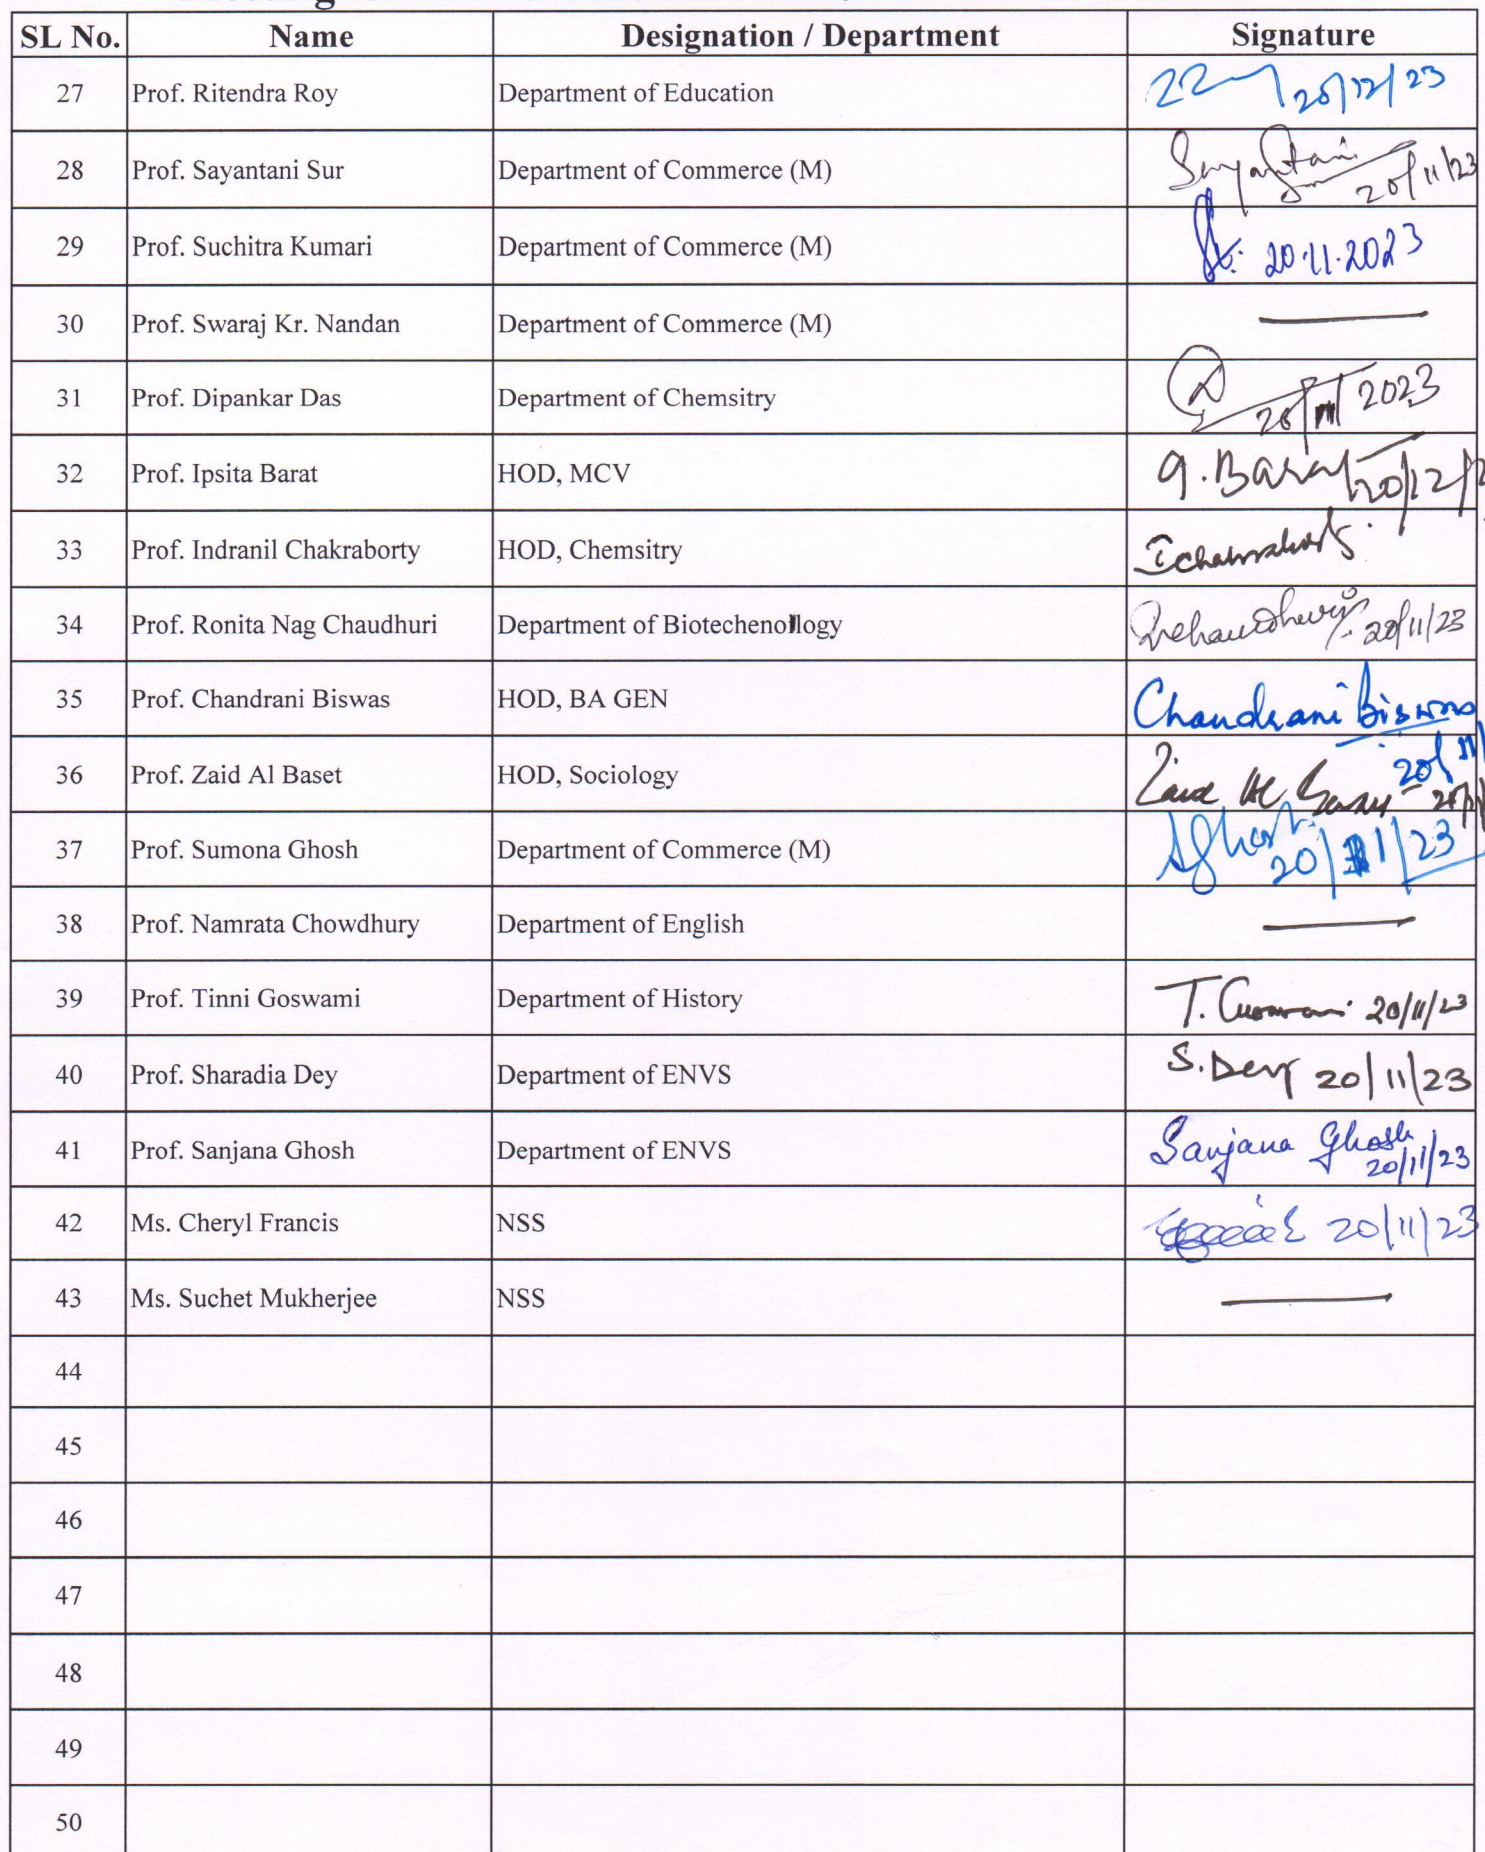 SL No. Name Designation / Department Signature
27 Prof. Ritendra Roy Department of Education 20/12/23
28 Prof. Sayantani Sur Department of Commerce (M) Sayantani 20/11/23
29 Prof. Suchitra Kumari Department of Commerce (M) 20.11.2023
30 Prof. Swaraj Kr. Nandan Department of Commerce (M) —
31 Prof. Dipankar Das Department of Chemsitry 20/11/2023
32 Prof. Ipsita Barat HOD, MCV I. Barat 20/12/2
33 Prof. Indranil Chakraborty HOD, Chemsitry IChakraborty
34 Prof. Ronita Nag Chaudhuri Department of Biotechenollogy 20/11/23
35 Prof. Chandrani Biswas HOD, BA GEN Chandrani Biswas
20/11/
36 Prof. Zaid Al Baset HOD, Sociology Zaid Al Baset
37 Prof. Sumona Ghosh Department of Commerce (M) SGhosh 20/11/23
38 Prof. Namrata Chowdhury Department of English —
39 Prof. Tinni Goswami Department of History T. Goswami 20/11/23
40 Prof. Sharadia Dey Department of ENVS S. Dey 20/11/23
41 Prof. Sanjana Ghosh Department of ENVS Sanjana Ghosh 20/11/23
42 Ms. Cheryl Francis NSS 20/11/23
43 Ms. Suchet Mukherjee NSS —
44
45
46
47
48
49
50